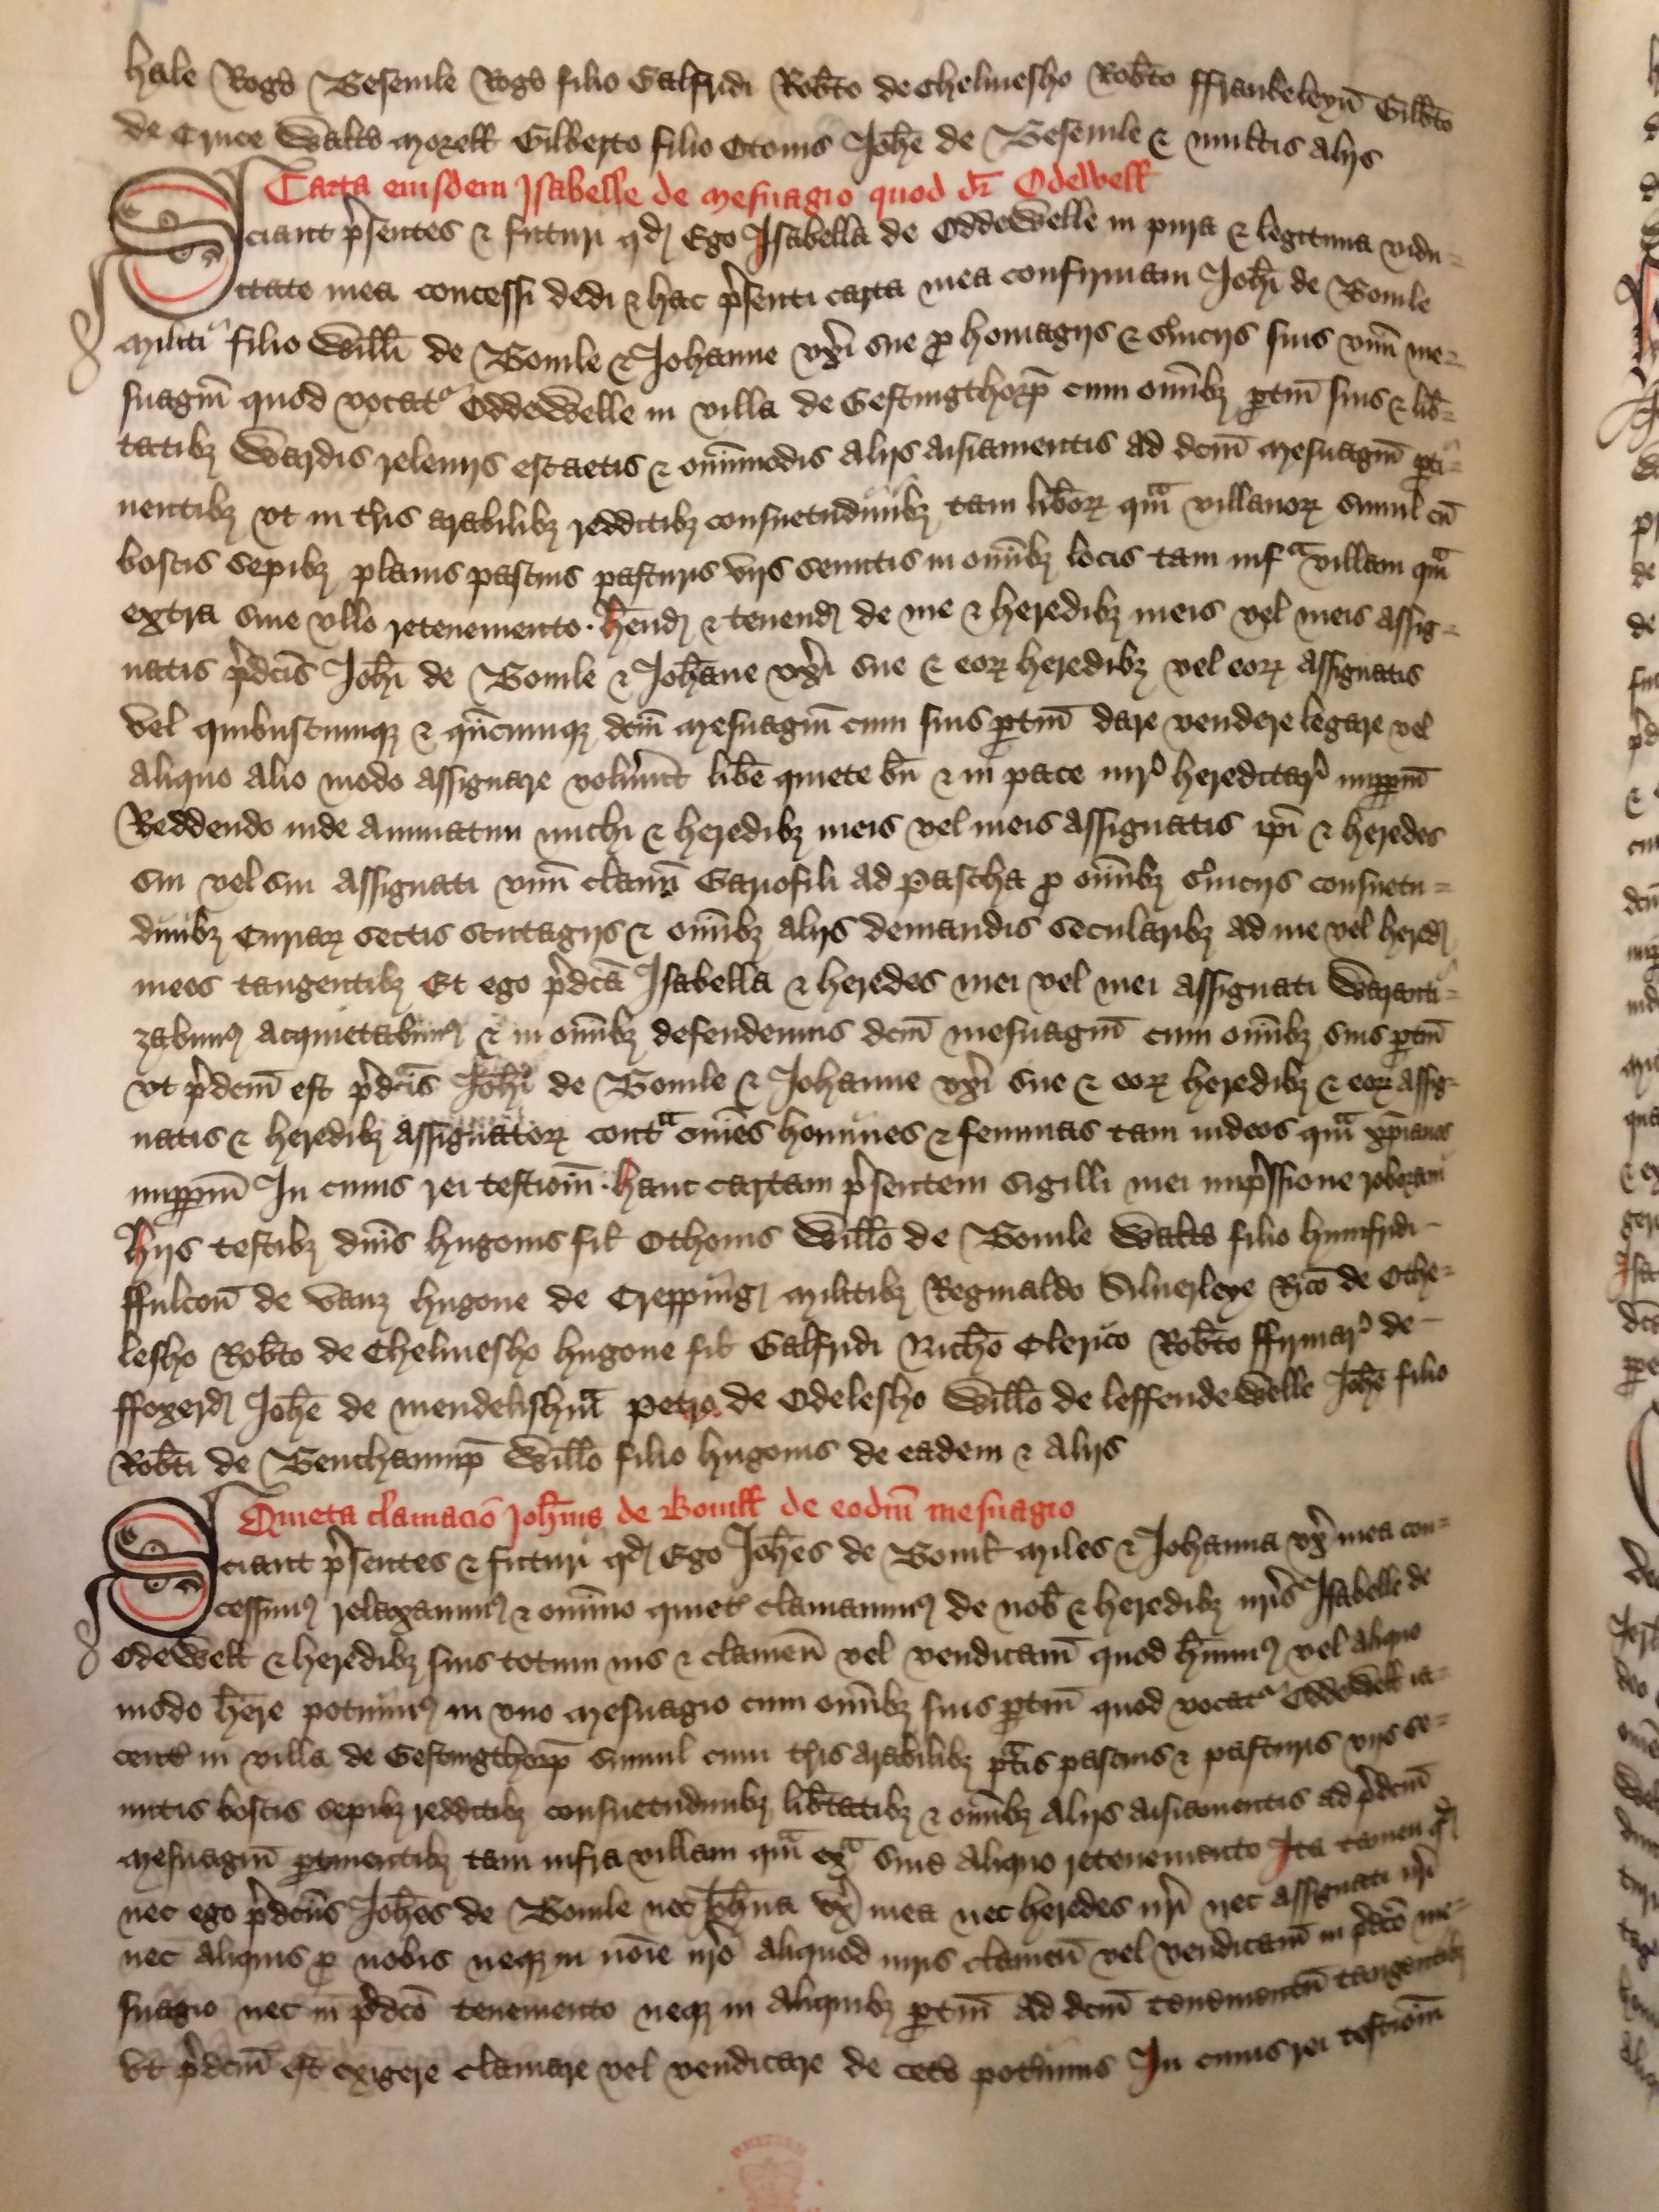 hale Rogo Besemle Rogo filio Galfridi Robto de Chelmesho Robto ffrankeleyn Gilbto
de Cruce Walto Morell Gilberto filio Otonis Johe de Besemle & multis alijs
Carta eiusdem Isabelle de mesuagio quod dr Odewell
Sciant psentes & futuri qd Ego Isabella de Oddewelle in pura & legitima vidu=
itate mea concessi dedi & hac psenti carta mea confirmaui Johi de Bomle
militi filio Willi de Bomle & Johanne vxi sue p homagijs & suicijs suis vnu me=
suagiu quod vocat Oddewelle in villa de Gestingthorp cum omibz ptin suis & lib=
tatibz Wardis releuijs escaetis & omimodis alijs aisiamentis ad dcm mesuagiu pti=
nentibz vt in tris arabilibz redditibz consuetudinibz tam liboz qm villanoz simul cu
boscis sepibz planis pascuis pasturis vijs semitis in omibz locis tam infa villam qm
extra sine vllo retenemento. hend & tenend de me & heredibz meis vel meis assig=
natis pdcis Johi de Bomle & Johane vxi sue & eoz heredibz vel eoz assignatis
vel quibuscumqz & qncumqz dcm mesuagiu cum suis ptin dare vendere legare vel
aliquo alio modo assignare voluint libe quiete bn & in pace iure hereditar imppm
Reddendo inde annuatim michi & heredibz meis vel meis assignatis ipi & heredes
sui vel sui assignati vnu clauu Gariofili ad Pascha p omibz suicijs consuetu=
dinibz Curiaz sectis scutagijs & omibz alijs demandis secularibz ad me vel hered
meos tangentibz Et ego pdca Isabella & heredes mei vel mei assignati Waranti=
zabimus acquietabimus & in omibz defendemus dcm mesuagiu cum omibz suis ptin
vt pdcm est pdcis Johi de Bomle & Johanne vxi sue & eoz heredibz & eoz assig=
natis & heredibz assignatoz conta omes homines & feminas tam iudeos qm xpianos
imppm In cuius rei testioim. hanc cartam psentem sigilli mei impssione roboraui
hijs testibz dnis hugonis fil Othonis Willo de Bomle Walto filio humfridi
ffulcon de Vauz hugone de Crepping militibz Reginaldo Siluerleye Rico de Othe=
lesho Robto de Chelmesho hugone fil Galfridi Nicho Clerico Robto ffirmar de
ffoxerd Johe de mendelishm Petro de Odelesho Willo de leffendewelle Johe filio
Robti de Beuchamp Willo filio hugonis de eadem & alijs
Quieta clamacio Johnis de Bomll de eodm mesuagio
Sciant psentes & futuri qd Ego Johes de Boml miles & Johanna vx mea con=
cessimus relaxauimus & omino quiet clamauimus de nob & heredibz nris Isabelle de
Odewell & heredibz suis totum ius & clameu vel vendicam quod huimus vel aliquo
modo here potuimus in vno mesuagio cum omibz suis ptin quod vocat Oddewell ia=
cent in villa de Gestingthorp simul cum tris arabilibz ptis pascuis & pasturis vijs se=
mitis boscis sepibz redditibz consuetudinibz libtatibz & omibz alijs aisiamentis ad pdcm
mesuagiu ptinentibz tam infra villam qm exa sine aliquo retenemento Ita tamen qd
nec ego pdcus Johes de Bomle nec Johna vx mea nec heredes nri nec assignati nri
nec aliquis p nobis neqz in noie nro aliquod iuris clameu vel vendicam in pdco me=
suagio nec in pdco tenemento neqz in aliquibz ptin ad dcm tenementu tangentibz
vt pdcm est exigere clamare vel vendicare de ceto potimus In cuius rei testioim